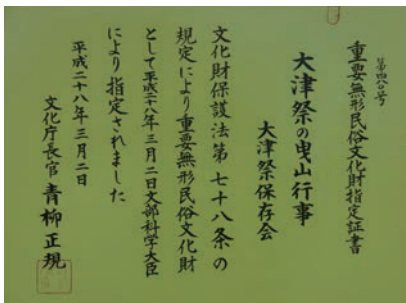 第四八〇号
重要無形民俗文化財指定証書
大津祭の曳山行事
大津祭保存会
文化財保護法第七十八条の
規定により重要無形民俗文化財
として平成二十八年三月二日文部科学大臣
により指定されました
平成二十八年三月二日
文化庁長官 青柳正規